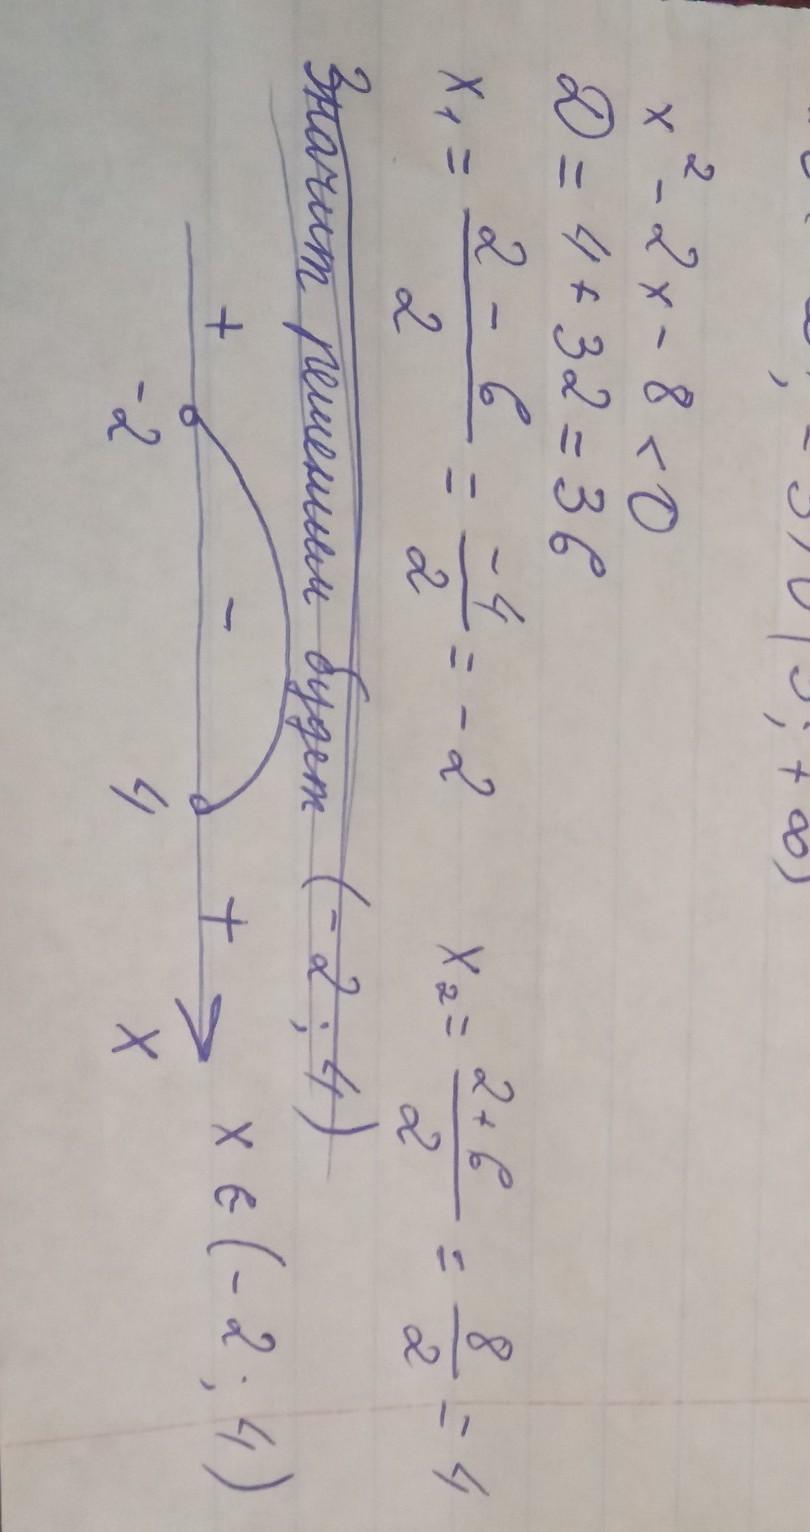 ; + ∞)
x² - 2x - 8 < 0
D = 4 + 32 = 36
x₁ = (2 - 6)/2 = -4/2 = -2 x₂ = (2 + 6)/2 = 8/2 = 4
Значит решением будет (-2 ; 4)
+ - + x ∈ (-2 ; 4)
-2 4 x